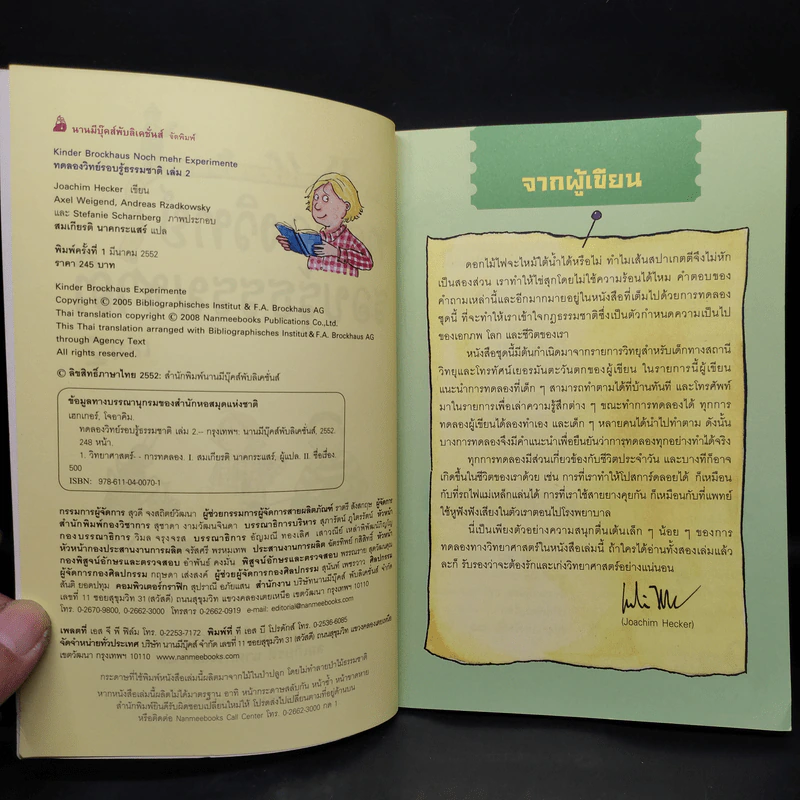 นานมีบุ๊คส์พับลิเคชั่นส์ จัดพิมพ์
Kinder Brockhaus Noch mehr Experimente
ทดลองวิทย์รอบรู้ธรรมชาติ เล่ม 2
Joachim Hecker เขียน
Axel Weigend, Andreas Rzadkowsky
และ Stefanie Scharnberg ภาพประกอบ
สมเกียรติ นาคกระแสร์ แปล
พิมพ์ครั้งที่ 1 มีนาคม 2552
ราคา 245 บาท
Kinder Brockhaus Experimente
Copyright © 2005 Bibliographisches Institut & F.A. Brockhaus AG
Thai translation copyright © 2008 Nanmeebooks Publications Co.,Ltd.
This Thai translation arranged with Bibliographisches Institut & F.A. Brockhaus AG
through Agency Text
All rights reserved.
© ลิขสิทธิ์ภาษาไทย 2552: สำนักพิมพ์นานมีบุ๊คส์พับลิเคชั่นส์
ข้อมูลทางบรรณานุกรมของสำนักหอสมุดแห่งชาติ
เฮกเกอร์, โจอาคิม.
ทดลองวิทย์รอบรู้ธรรมชาติ เล่ม 2.-- กรุงเทพฯ: นานมีบุ๊คส์พับลิเคชั่นส์, 2552.
248 หน้า.
1. วิทยาศาสตร์- - การทดลอง. I. สมเกียรติ นาคกระแสร์, ผู้แปล. II. ชื่อเรื่อง.
500
ISBN: 978-611-04-0070-1
กรรมการผู้จัดการ สุวดี จงสถิตย์วัฒนา ผู้ช่วยกรรมการผู้จัดการสายผลิตภัณฑ์ ราตรี สังสกฤษ ผู้จัดการ
สำนักพิมพ์กองวิชาการ สุชาดา งามวัฒนจินดา บรรณาธิการบริหาร สุภารัตน์ ภูไตรรัตน์ หัวหน้า
กองบรรณาธิการ วิมล จรุงจรส บรรณาธิการ อัญมณี ทองเลิศ เสาวณีย์ เหล่าพิพัฒน์ภิญโญ
หัวหน้ากองประสานงานการผลิต จรัสศรี พรหมเทพ ประสานงานการผลิต หัวหน้า
กองพิสูจน์อักษรและตรวจสอบ อำพันธ์ คงมั่น พิสูจน์อักษรและตรวจสอบ พรรณราย
ผู้จัดการกองศิลปกรรม กฤษดา เส่งสงค์ ผู้ช่วยผู้จัดการกองศิลปกรรม สุนันท์ เพชรวาว ศิลปกรรม
สันติ ยอดปทุม คอมพิวเตอร์กราฟิก สุปราณี อภัยแสน สำนักงาน บริษัทนานมีบุ๊คส์ พับลิเคชั่นส์ จำกัด
เลขที่ 11 ซอยสุขุมวิท 31 (สวัสดี) ถนนสุขุมวิท แขวงคลองเตยเหนือ เขตวัฒนา กรุงเทพฯ 10110
โทร. 0-2670-9800, 0-2662-3000 โทรสาร 0-2662-0919 e-mail: editorial@nanmeebooks.com
เพลตที่ เอส จี พี ฟิล์ม โทร. 0-2253-7172 พิมพ์ที่ ที เอส บี โปรดักส์ โทร. 0-2536-6085
จัดจำหน่ายทั่วประเทศ บริษัท นานมีบุ๊คส์ จำกัด เลขที่ 11 ซอยสุขุมวิท 31 (สวัสดี) ถนนสุขุมวิท แขวงคลองเตยเหนือ
เขตวัฒนา กรุงเทพฯ 10110 www.nanmeebooks.com
กระดาษที่ใช้พิมพ์หนังสือเล่มนี้ผลิตมาจากไม้ในป่าปลูก โดยไม่ทำลายป่าไม้ธรรมชาติ
หากหนังสือเล่มนี้ผลิตไม่ได้มาตรฐาน อาทิ หน้ากระดาษสลับกัน หน้าซ้ำ หน้าขาดหาย
สำนักพิมพ์ยินดีรับผิดชอบเปลี่ยนใหม่ให้ โปรดส่งไปเปลี่ยนตามที่อยู่ด้านบน
หรือติดต่อ Nanmeebooks Call Center โทร. 0-2662-3000 กด 1
จากผู้เขียน
ดอกไม้ไฟจะไหม้ใต้น้ำได้หรือไม่ ทำไมเส้นสปาเกตตีจึงไม่หัก
เป็นสองส่วน เราทำให้ไข่สุกโดยไม่ใช้ความร้อนได้ไหม คำตอบของ
คำถามเหล่านี้และอีกมากมายอยู่ในหนังสือที่เต็มไปด้วยการทดลอง
ชุดนี้ ที่จะทำให้เราเข้าใจกฎธรรมชาติซึ่งเป็นตัวกำหนดความเป็นไป
ของเอกภพ โลก และชีวิตของเรา
หนังสือชุดนี้มีต้นกำเนิดมาจากรายการวิทยุสำหรับเด็กทางสถานี
วิทยุและโทรทัศน์เยอรมันตะวันตกของผู้เขียน ในรายการนี้ผู้เขียน
แนะนำการทดลองที่เด็ก ๆ สามารถทำตามได้ที่บ้านทันที และโทรศัพท์
มาในรายการเพื่อเล่าความรู้สึกต่าง ๆ ขณะทำการทดลองได้ ทุกการ
ทดลองผู้เขียนได้ลองทำเอง และเด็ก ๆ หลายคนได้นำไปทำตาม ดังนั้น
บางการทดลองจึงมีคำแนะนำเพื่อยืนยันว่าการทดลองทุกอย่างทำได้จริง
ทุกการทดลองมีส่วนเกี่ยวข้องกับชีวิตประจำวัน และบางทีก็อาจ
เกิดขึ้นในชีวิตของเราด้วย เช่น การที่เราทำให้โปสการ์ดลอยได้ ก็เหมือน
กับที่รถไฟแม่เหล็กแล่นได้ การที่เราใช้สายยางคุยกัน ก็เหมือนกับที่แพทย์
ใช้หูฟังฟังเสียงในตัวเราตอนไปโรงพยาบาล
นี่เป็นเพียงตัวอย่างความสนุกตื่นเต้นเล็ก ๆ น้อย ๆ ของการ
ทดลองทางวิทยาศาสตร์ในหนังสือเล่มนี้ ถ้าใครได้อ่านทั้งสองเล่มแล้ว
ละก็ รับรองว่าจะต้องรักและเก่งวิทยาศาสตร์อย่างแน่นอน
(Joachim Hecker)